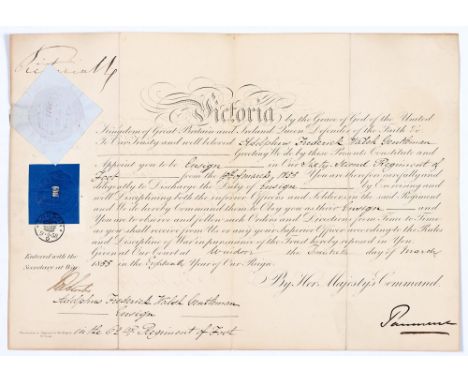 Victoria
Victoria by the Grace of God of the United
Kingdom of Great Britain and Ireland Queen Defender of the Faith &c
To Our Trusty and well beloved Adolphus Frederick Walsh Gentleman
Greeting We do by these Presents Constitute and
Appoint you to be Ensign in Our Sixty Second Regiment of
Foot from the March 1855 You are therefore carefully and
diligently to Discharge the Duty of Ensign by Exercising and
well Disciplining both the inferior Officers and Soldiers in the said Regiment
and We do hereby Command them to Obey you as their Ensign And
You are to observe and follow such Orders and Directions from Time to Time
as you shall receive from Us or any your Superior Officer according to the Rules
and Discipline of War in pursuance of the Trust hereby reposed in You
Given at Our Court at Windsor the day of March
1855 in the Eighteenth Year of Our Reign
Entered with the
Secretary at War
By Her Majesty's Command.
Adolphus Frederick Walsh Gentleman
Ensign
in the 62d Regiment of Foot
Panmure